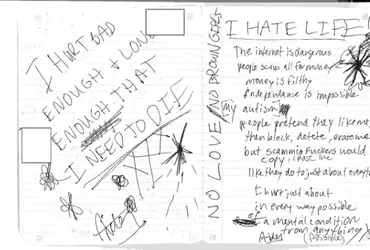 I HURT BAD
ENOUGH & LONG
ENOUGH THAT
I NEED TO DIE
Aids
NO LOVE / NO
I HATE LIFE
The internet is dangerous
people scam all for money
money is filthy
independance is impossible
my autism
people pretend they like me,
then block, delete,
but scamming fuckers would
copy,
like they do to just about everyth
I hurt just about
in every way possible
of a mental condition
from anything
(possible)